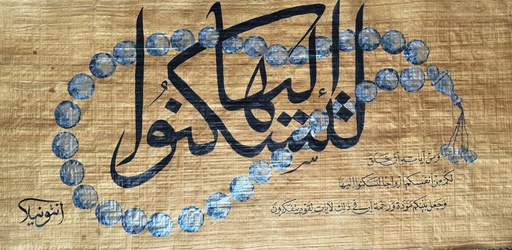 لتسكنوا إليها
ومن آياته أن خلق
لكم من أنفسكم أزواجا لتسكنوا إليها
وجعل بينكم مودة ورحمة إن في ذلك لآيات لقوم يتفكرون
أنتونيلا